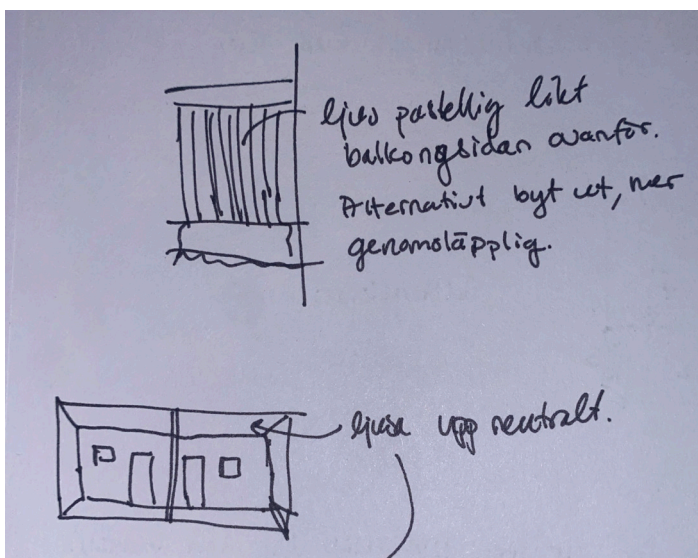 ljus pastellig likt
balkongsidan ovanför.
Alternativt byt ut, mer
genomsläpplig.
ljusa upp neutralt.